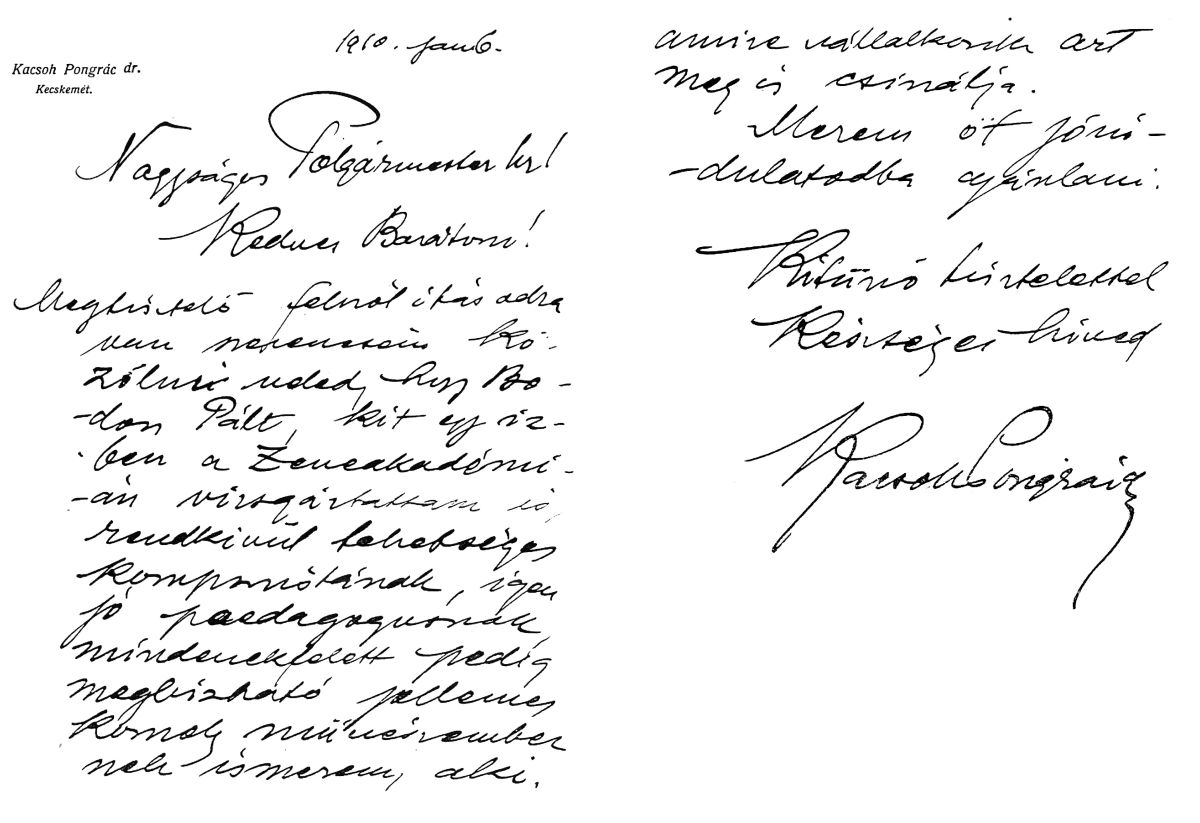 1910. jan 6.
Kacsoh Pongrác dr.
Kecskemét.
Nagyságos Polgármester Ur!
Kedves Barátom!
Megtisztelő felszólitásodra
van szerencsém kö-
zölni veled, hogy Bo-
-don Pált, kit egy iz-
ben a Zeneakadémi-
-án vizsgáztattam is,
rendkivül tehetséges
komponistának, igen
jó paedagogusnak,
mindenekfelett pedig
megbizható jellemes
komoly művészember
nek ismerem, aki,
amire vállalkozik azt
meg is csinálja.
Merem őt jóin-
-dulatodba ajánlani.
Kitünő tisztelettel
Készséges hived
Kacsoh Pongrác